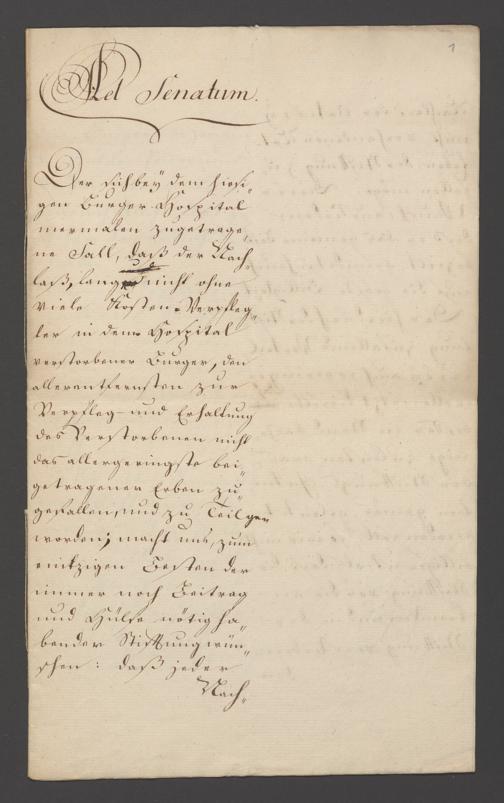 1
Ad Senatum.
Der sich bey dem hiesi„
gen Burger-Hospital
mermalen zugetrage„
ne Fall, daß der Nach„
laß, lang und nicht ohne
viele Kosten-Verpfleg„
ter in dem Hospital
verstorbener Burger, den
allerentferntsten zur
Verpfleg- und Erhaltung
des Verstorbenen nicht
das allergeringste bei„
getragenen Erben zu„
gefallen, und zu Teil gen
worden; macht uns, zum
einzigen Besten der
immer noch Beitrag
und Hülfe nötig ha„
bender Stifftung wün„
schen: daß jeder
Nach„